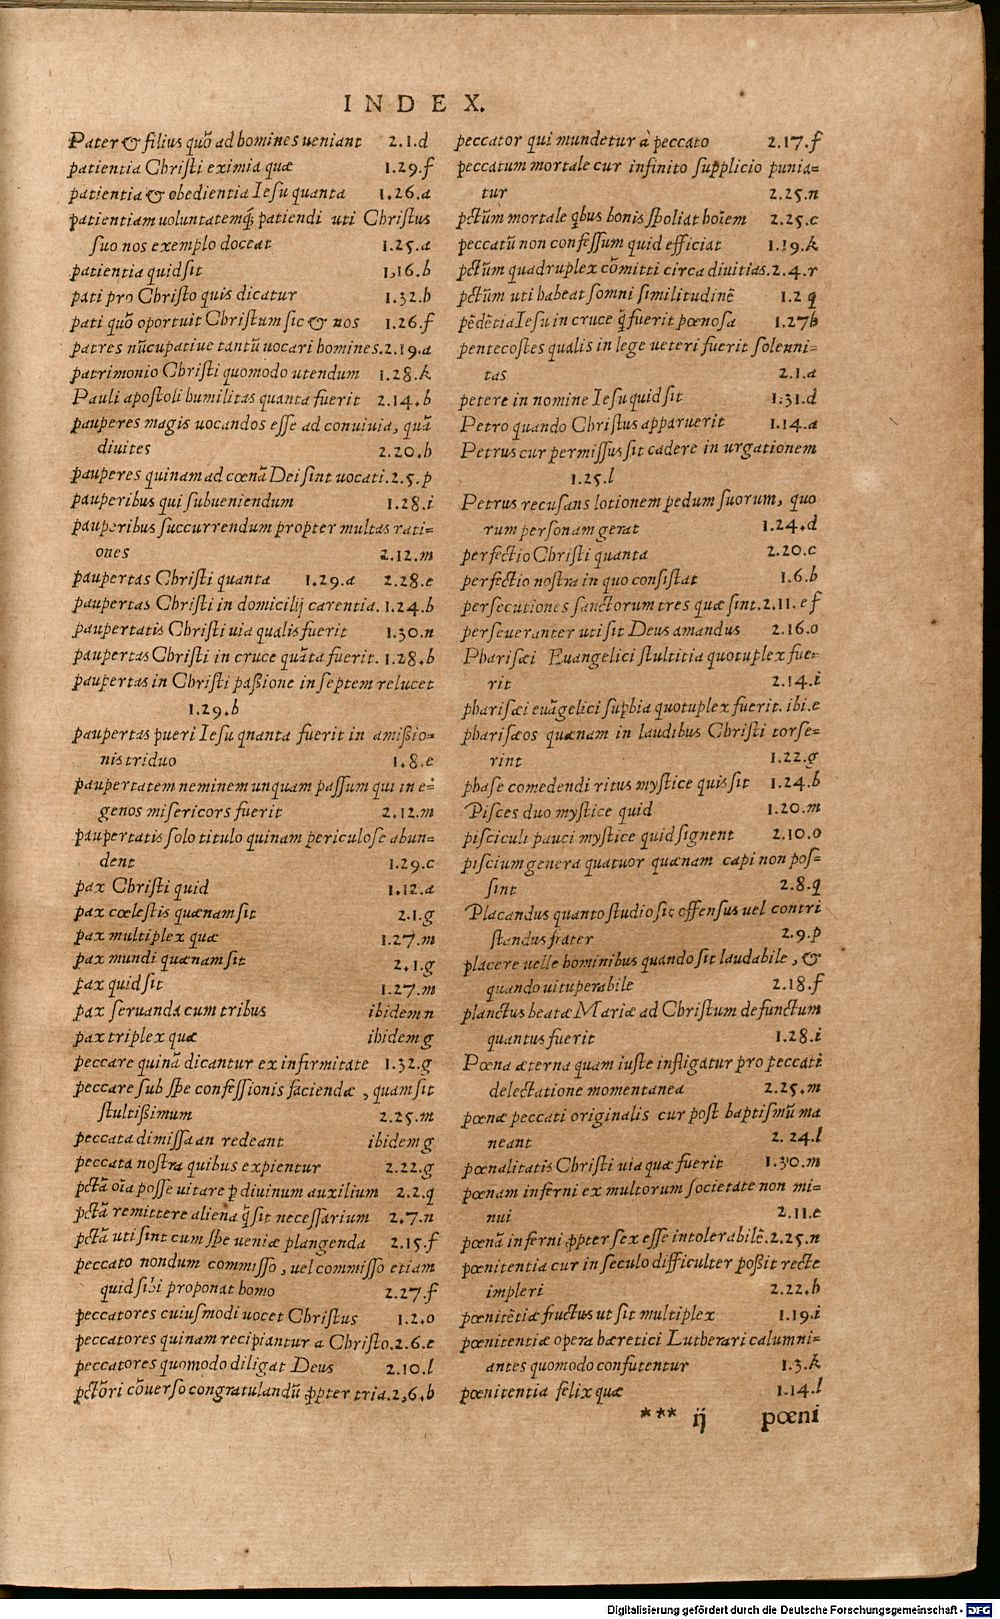 INDEX.
Pater & filius quõ ad homines ueniant 2.1.d
patientia Christi eximia quæ 1.29.f
patientia & obedientia Iesu quanta 1.26.a
patientiam uoluntatemq́; patiendi uti Christus
suo nos exemplo doceat 1.25.a
patientia quid sit 1.16.b
pati pro Christo quis dicatur 1.32.h
pati quõ oportuit Christum sic & nos 1.26.f
patres nũcupatiue tantũ uocari homines. 2.19.a
patrimonio Christi quomodo utendum 1.28.k
Pauli apostoli humilitas quanta fuerit 2.14.b
pauperes magis uocandos esse ad conuiuia, quã
diuites 2.20.h
pauperes quinam ad cœnã Dei sint uocati. 2.5.p
pauperibus qui subueniendum 1.28.i
pauperibus succurrendum propter multas rati=
ones 2.12.m
paupertas Christi quanta 1.29.a 2.28.e
paupertas Christi in domicilij carentia. 1.24.b
paupertatis Christi uia qualis fuerit 1.30.n
paupertas Christi in cruce quãta fuerit. 1.28.b
paupertas in Christi paßione in septem relucet
1.29.b
paupertas pueri Iesu qnanta fuerit in amißio=
nis triduo 1.8.e
paupertatem neminem unquam passum qui in e=
genos misericors fuerit 2.12.m
paupertatis solo titulo quinam periculose abun=
dent 1.29.c
pax Christi quid 1.12.a
pax cœlestis quænam sit 2.1.g
pax multiplex quæ 1.27.m
pax mundi quænam sit 2.1.g
pax quid sit 1.27.m
pax seruanda cum tribus ibidem n
pax triplex quæ ibidem g
peccare quinã dicantur ex infirmitate 1.32.g
peccare sub spe confessionis faciendæ, quam sit
stultißimum 2.25.m
peccata dimissa an redeant ibidem g
peccata nostra quibus expientur 2.22.g
pctã oĩa posse uitare p diuinum auxilium 2.2.q
pctã remittere aliena q̃ sit necessarium 2.7.n
pctã uti sint cum spe ueniæ plangenda 2.15.f
peccato nondum commisso, uel commisso etiam
quid sibi proponat homo 2.27.f
peccatores cuiusmodi uocet Christus 1.2.o
peccatores quinam recipiantur a Christo. 2.6.e
peccatores quomodo diligat Deus 2.10.l
pctõri cõuerso congratulandũ ppter tria. 2,6.b
peccator qui mundetur à peccato 2.17.f
peccatum mortale cur infinito supplicio punia=
tur 2.25.n
pctũm mortale qbus bonis spoliat hoĩem 2.25.c
peccatũ non confessum quid efficiat 1.19.k
pctũm quadruplex cõmitti circa diuitias. 2.4.r
pctũm uti habeat somni similitudinẽ 1.2 q
pẽdẽtia Iesu in cruce q̃ fuerit pœnosa 1.27h
pentecostes qualis in lege ueteri fuerit solenni=
tas 2.1.a
petere in nomine Iesu quid sit 1.31.d
Petro quando Christus apparuerit 1.14.a
Petrus cur permissus sit cadere in urgationem
1.25.l
Petrus recusans lotionem pedum suorum, quo
rum personam gerat 1.24.d
perfectio Christi quanta 2.20.c
perfectio nostra in quo consistat 1.6.b
persecutiones sanctorum tres quæ sint. 2.11.e f
perseueranter uti sit Deus amandus 2.16.o
Pharisæi Euangelici stultitia quotuplex fue=
rit 2.14.i
pharisæi euãgelici supbia quotuplex fuerit. ibi.e
pharisæos quænam in laudibus Christi torse=
rint 1.22.g
phase comedendi ritus mystice quis sit 1.24.b
Pisces duo mystice quid 1.20.m
pisciculi pauci mystice quid signent 2.10.o
piscium genera quatuor quænam capi non pos=
sint 2.8.q
Placandus quanto studio sic offensus uel contri
standus frater 2.9.p
placere uelle hominibus quando sit laudabile, &
quando uituperabile 2.18.f
planctus beatæ Mariæ ad Christum defunctum
quantus fuerit 1.28.i
Pœna æterna quam iuste infligatur pro peccati
delectatione momentanea 2.25.m
pœnæ peccati originalis cur post baptismũ ma
neant 2.24.l
pœnalitatis Christi uia quæ fuerit 1.30.m
pœnam inferni ex multorum societate non mi=
nui 2.11.e
pœnã inferni ppter sex esse intolerabilẽ. 2.25.n
pœnitentia cur in seculo difficulter poßit recte
impleri 2.22.h
pœnitẽtiæ fructus ut sit multiplex 1.19.i
pœnitentiæ opera hæretici Lutherari calumni=
antes quomodo confutentur 1.3.k
pœnitentia felix quæ 1.14.l
*** ij pœni
Digitalisierung gefördert durch die Deutsche Forschungsgemeinschaft - DFG